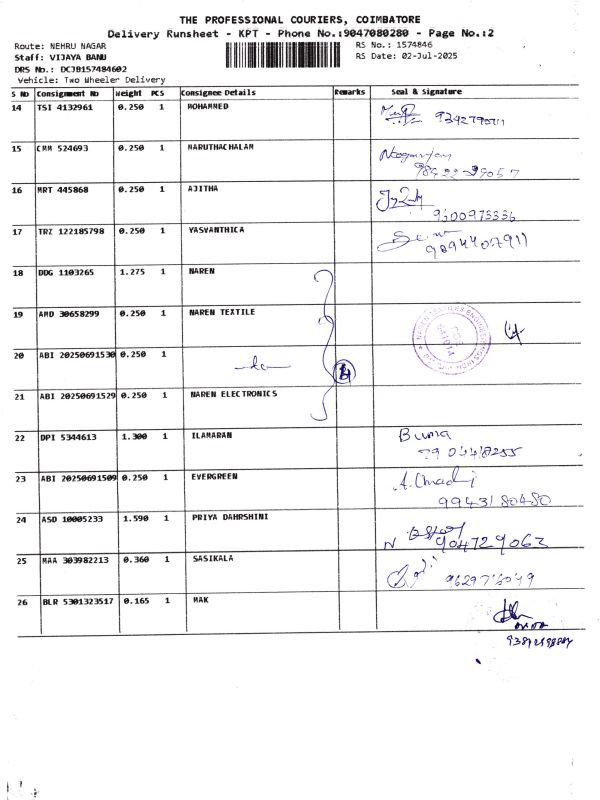 THE PROFESSIONAL COURIERS, COIMBATORE
Delivery Runsheet - KPT - Phone No.:9047080280 - Page No.:2
Route: NEHRU NAGAR
RS No.: 1574846
Staff: VIJAYA BANU
RS Date: 02-Jul-2025
DRS No.: DCJB157484602
Vehicle: Two Wheeler Delivery
S No Consignment No Weight PCS Consignee Details Remarks Seal & Signature
14 TSI 4132961 0.250 1 MOHAMMED
15 CMM 524693 0.250 1 MARUTHACHALAM
16 MRT 445868 0.250 1 AJITHA
9600973336
17 TRZ 122185798 0.250 1 YASVANTHICA
9894407911
18 DDG 1103265 1.275 1 NAREN
19 AMD 30658299 0.250 1 NAREN TEXTILE
20 ABI 20250691530 0.250 1
21 ABI 20250691529 0.250 1 NAREN ELECTRONICS
4
22 DPI 5344613 1.300 1 ILAMARAN
23 ABI 20250691509 0.250 1 EVERGREEN
9943180480
24 ASD 10005233 1.590 1 PRIYA DAHRSHINI
904729062
25 MAA 303982213 0.360 1 SASIKALA
26 BLR 5301323517 0.165 1 MAK